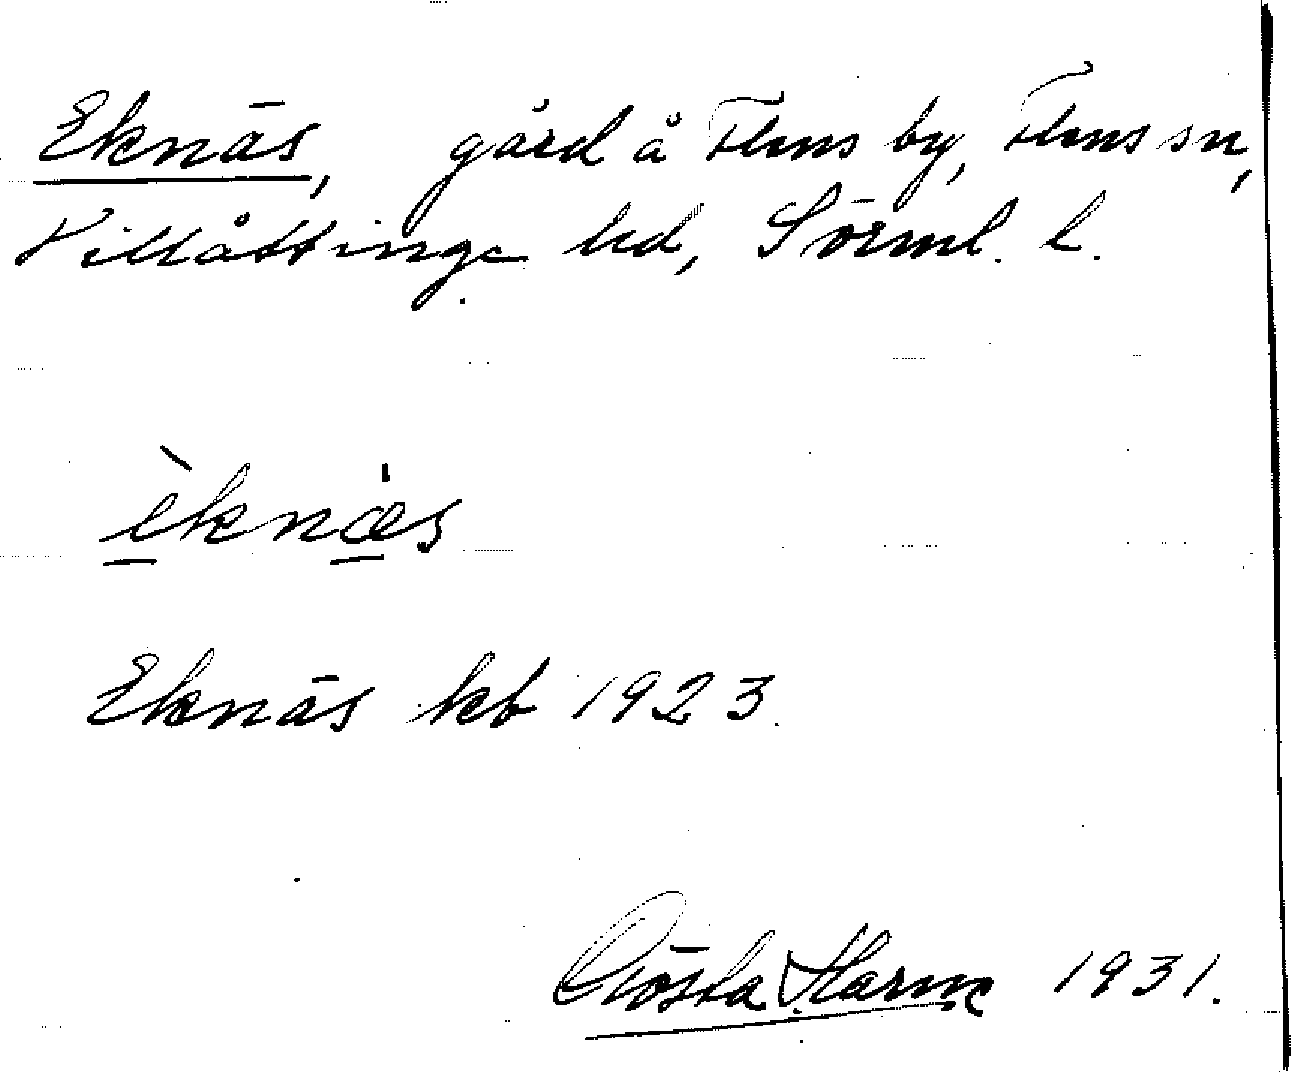 Eknäs, gård å Flens by, Flens sn,
Villåttinge hd, Sörml. l.
èknæs
Eknäs kb 1923.
Gösta Harme 1931.